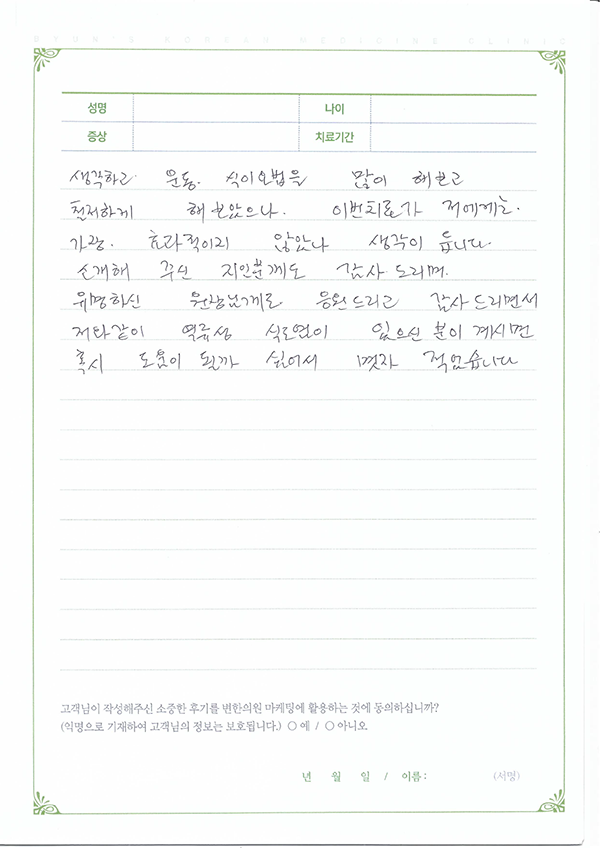 BYUN'S KOREAN MEDICINE CLINIC
성명 나이
증상 치료기간
생각하고 운동. 식이요법을 많이 해보고
철저하게 해보았으나. 이번치료가 저에게는.
가장. 효과적이지 않았나 생각이 듭니다.
소개해 주신 지인분께도 감사 드리며.
유명하신 원장님께도 응원드리고 감사드리면서
저와같이 역류성 식도염이 있으신 분이 계시면
혹시 도움이 될까 싶어서 몇자 적었습니다
고객님이 작성해주신 소중한 후기를 변한의원 마케밍에 활용하는 것에 동의하십니까?
(익명으로 기재하여 고객님의 정보는 보호됩니다.) ○ 예 / ○ 아니오
년 월 일 / 이름 : (서명)